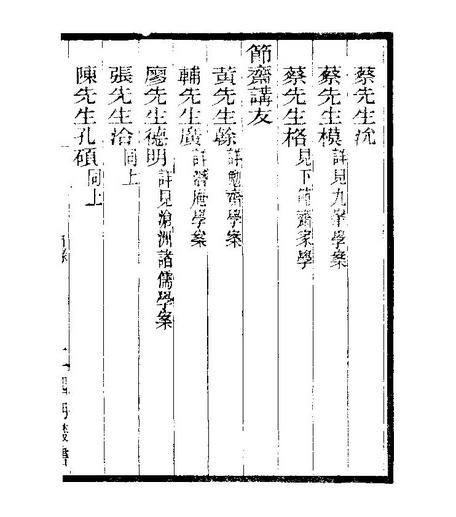 蔡先生沆
蔡先生模 詳見九峯學案
蔡先生格 見下節齋家學
節齋講友
黃先生榦 詳勉齋學案
輔先生廣 詳潛庵學案
廖先生德明 詳見滄洲諸儒學案
張先生洽 同上
陳先生孔碩 同上
四明叢書